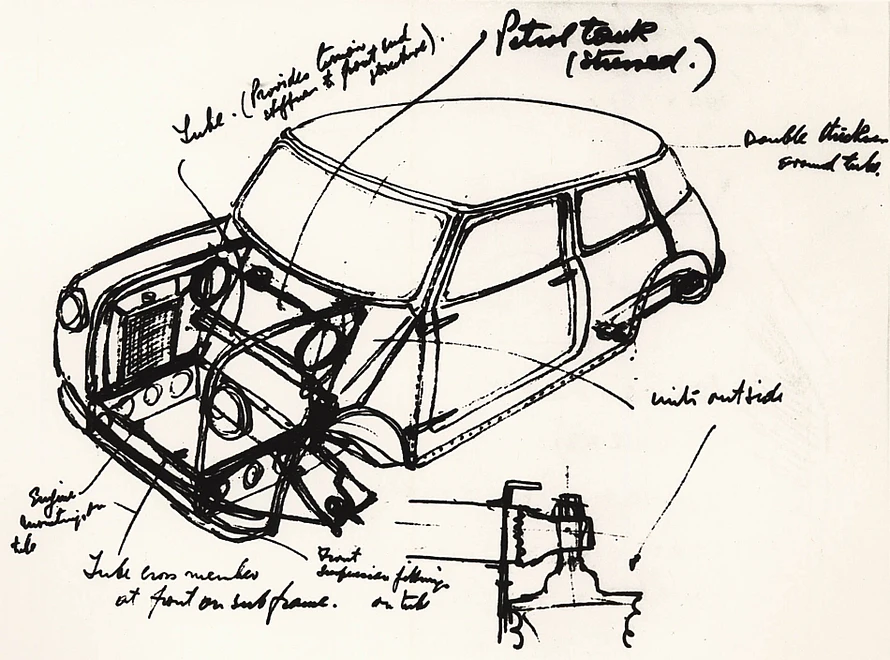 Petrol tank
(Stressed.)
Tube. (Provides torsion
stiffness & front end
structure).
Double thickness
around tube.
units outside
Engine
mounting on
tube
Tube cross member
at front on subframe.
Front
suspension fittings
on tube